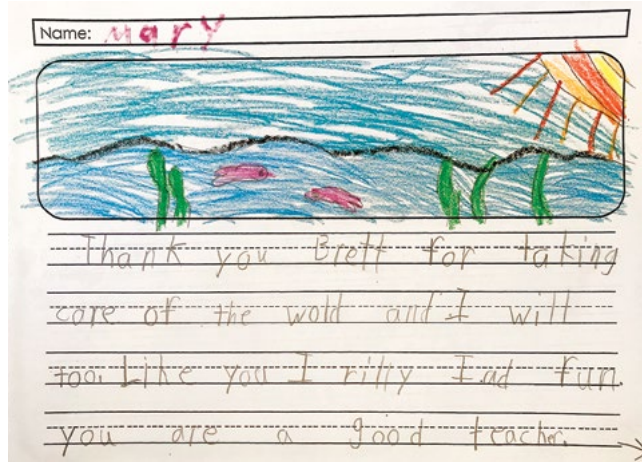 Name: Mary
Thank you Brett for taking
care of the wold and I will
too. Like you I rilly Iad fun.
you are a good teacher.